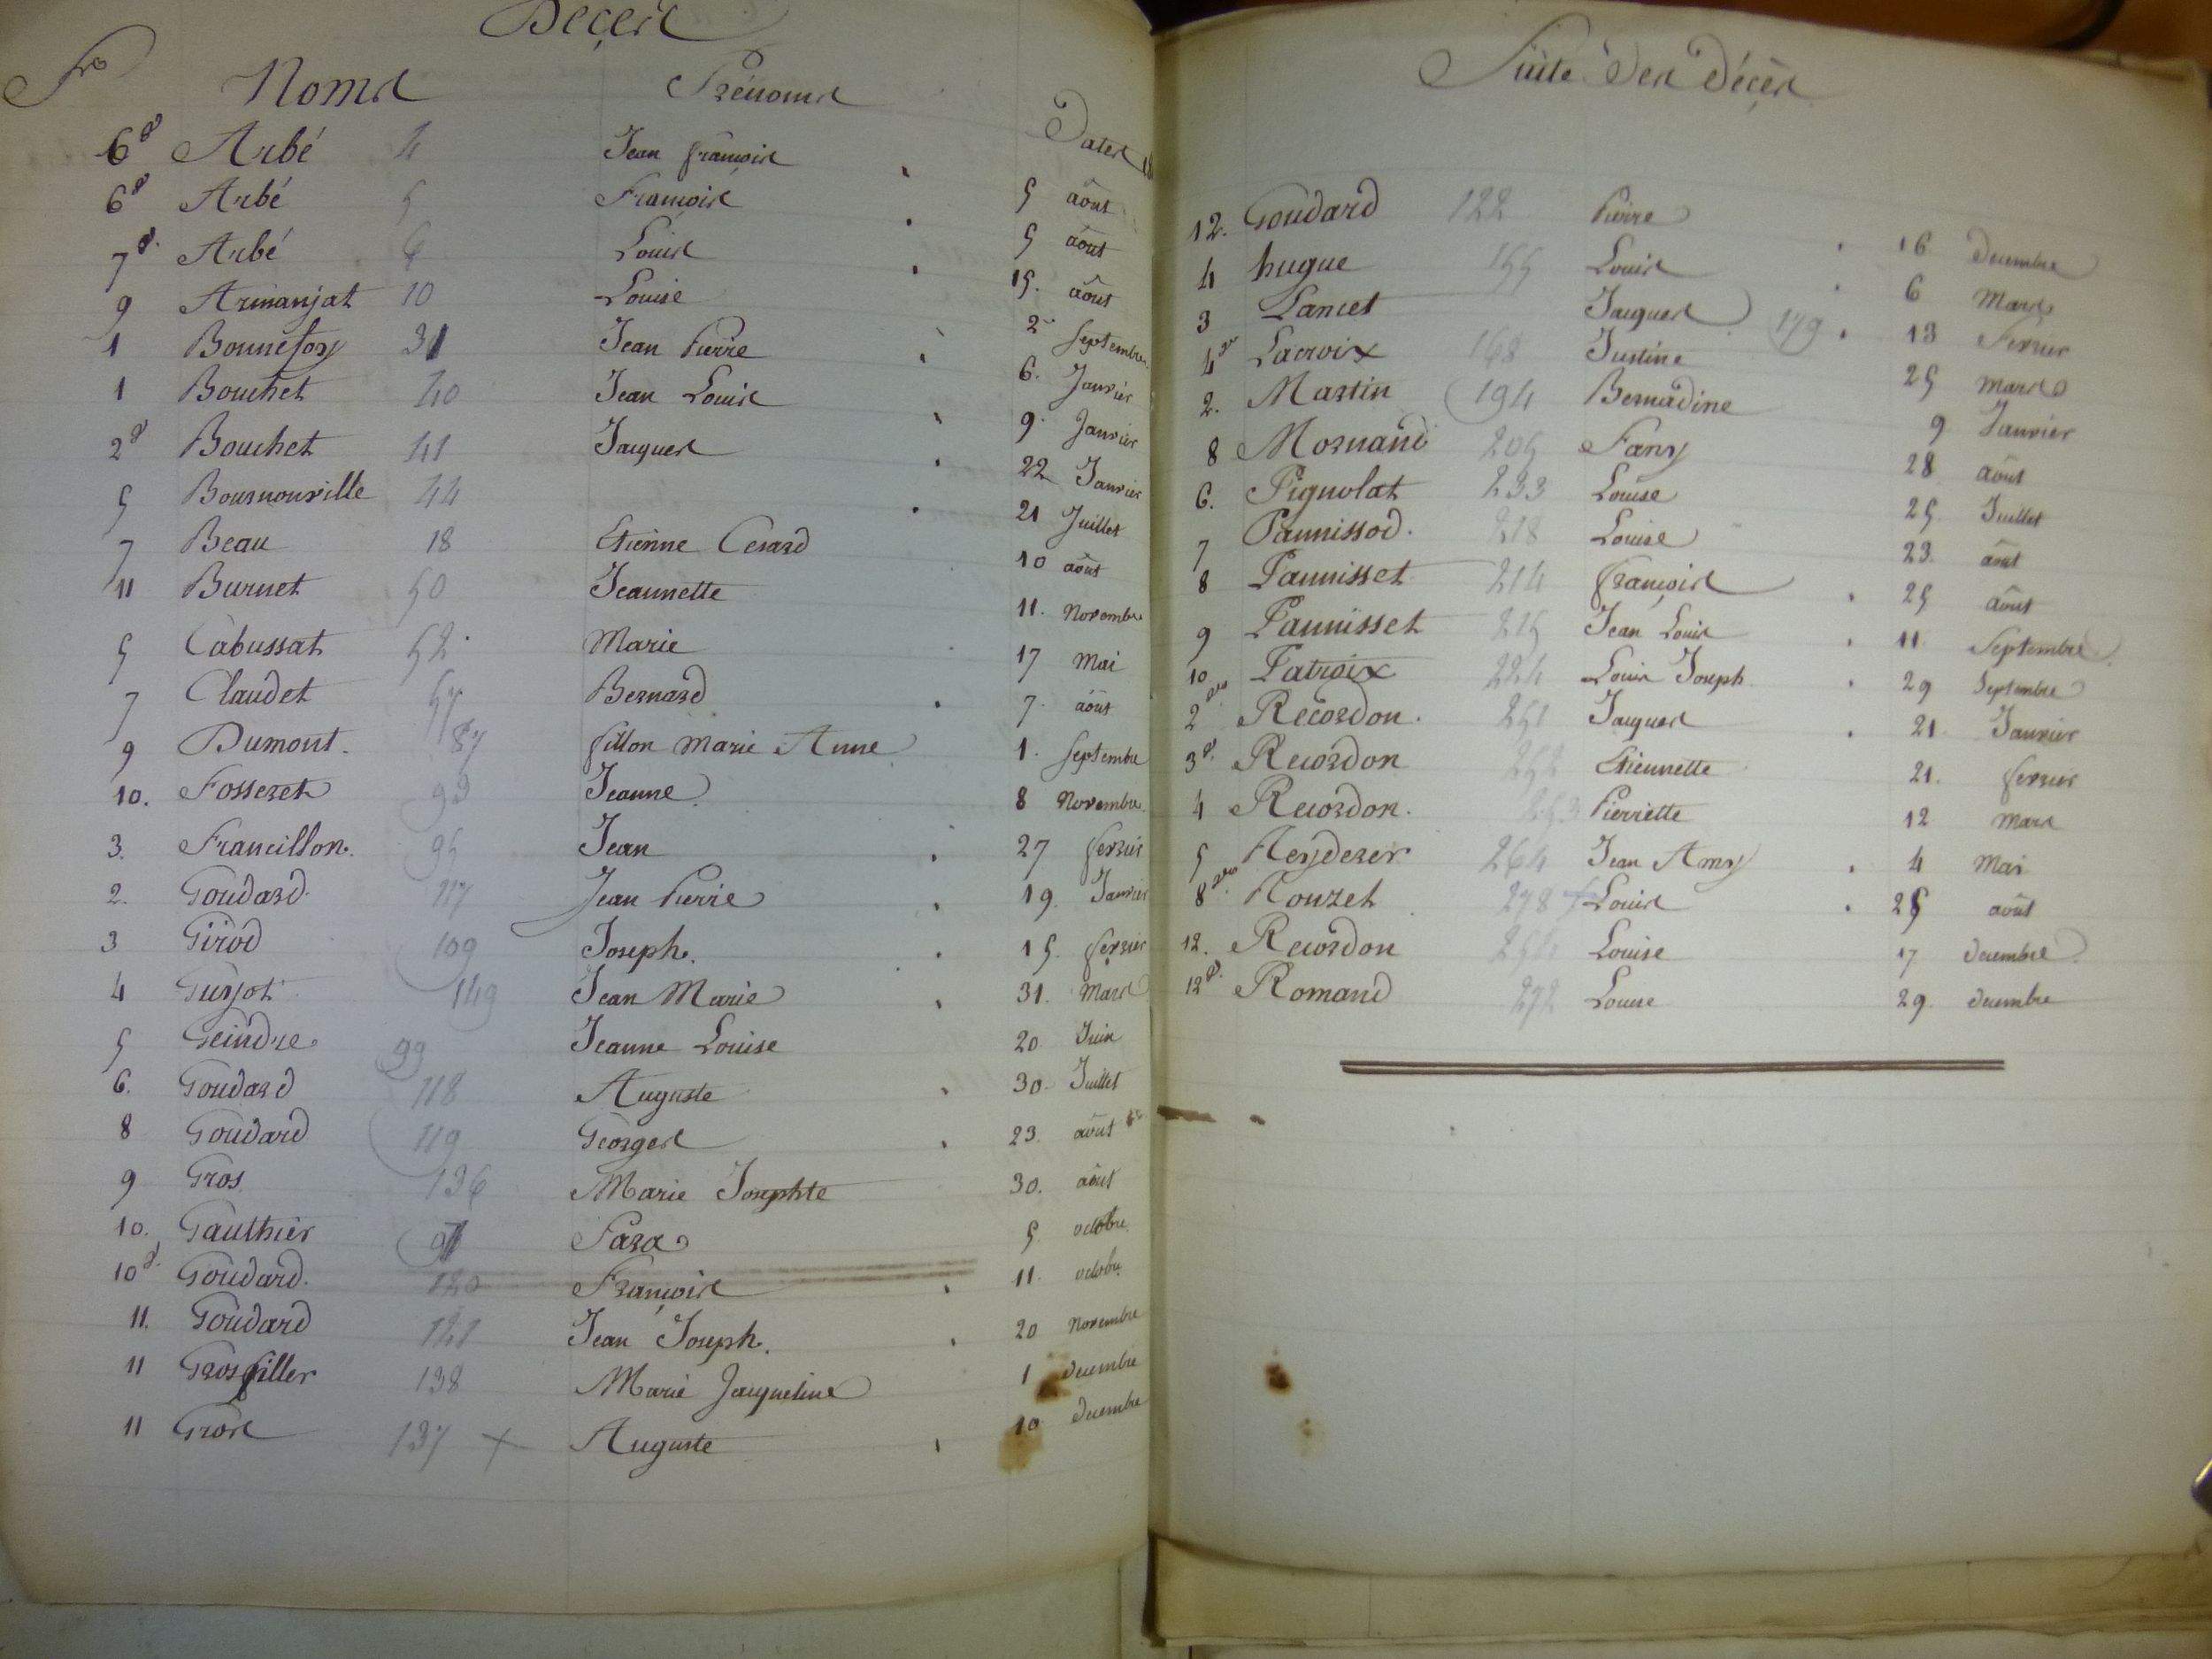 Décès
Fo Noms Prénoms Dates
6 Arbé 4 Jean françois 5 août
6 Arbé 5 François 5 août
7 Arbé 6 Louis 15. août
9 Armanjat 10 Louise 2 Septembre
1 Bonnefoy 31 Jean Pierre 6. Janvier
1 Bouchet 40 Jean Louis 9. Janvier
2 Bouchet 41 Jacques 22 Janvier
5 Bournonville 44 21 Juillet
7 Beau 18 Etienne Cesard 10 août
11 Burnet 50 Jeannette 11. Novembre
5 Cabussat 52. Marie 17 Mai
7 Claudet 57 Bernard 7. août
9 Dumont. 87 fillon Marie Anne 1. Septembre
10. Fosseret 93 Jeanne 8 Novembre
3. Francillon. 95 Jean 27 fevrier
2. Goudard. 117 Jean Pierre 19. Janvier
3 Girod 109 Joseph. 15. fevrier
4 Guyot 149 Jean Marie 31. Mars
5 Geindre 99 Jeanne Louise 20 Juin
6. Goudard 118 Auguste 30. Juillet
8 Goudard 119 Georges 23. août
9 Gros 136 Marie Josephte 30. août
10. Gauthier 97 Fara 5 octobre
10 Goudard. 120 François 11. octobre
11. Goudard 121 Jean Joseph. 20 Novembre
11 Grosfiller 138 Marie Jacqueline 1 decembre
11 Gros 137 + Auguste 10 decembre
Suite des décès
12. Goudard 122 Pierre 16 Decembre
4 hugue 155 Louis 6 Mars
3 Lancet Jacques 179 13 Fevrier
4 Lacroix 168 Justine 25 mars
2. Martin 194 Bernadine 9 Janvier
8 Mornand 205 Fany 28 août
6. Pignolat 233 Louise 25 Juillet
7 Pannissod. 218 Louise 23. août
8 Pannisset 214 françois 25 août
9 Pannisset 215 Jean Louis 11 Septembre
10 Patroix 224 Louis Joseph 29 Septembre
2 Recordon. 251 Jacques 21 Janvier
3 Recordon 252 Etiennette 21. fevrier
4 Recordon. 253 Pierrette 12 mars
5 Reydeser 264 Jean Amy 4 Mai
8 Rouzet 278 + Louis 25 août
12. Recordon 254 Louise 17 decembre
12 Romand 272 Louise 29. decembre